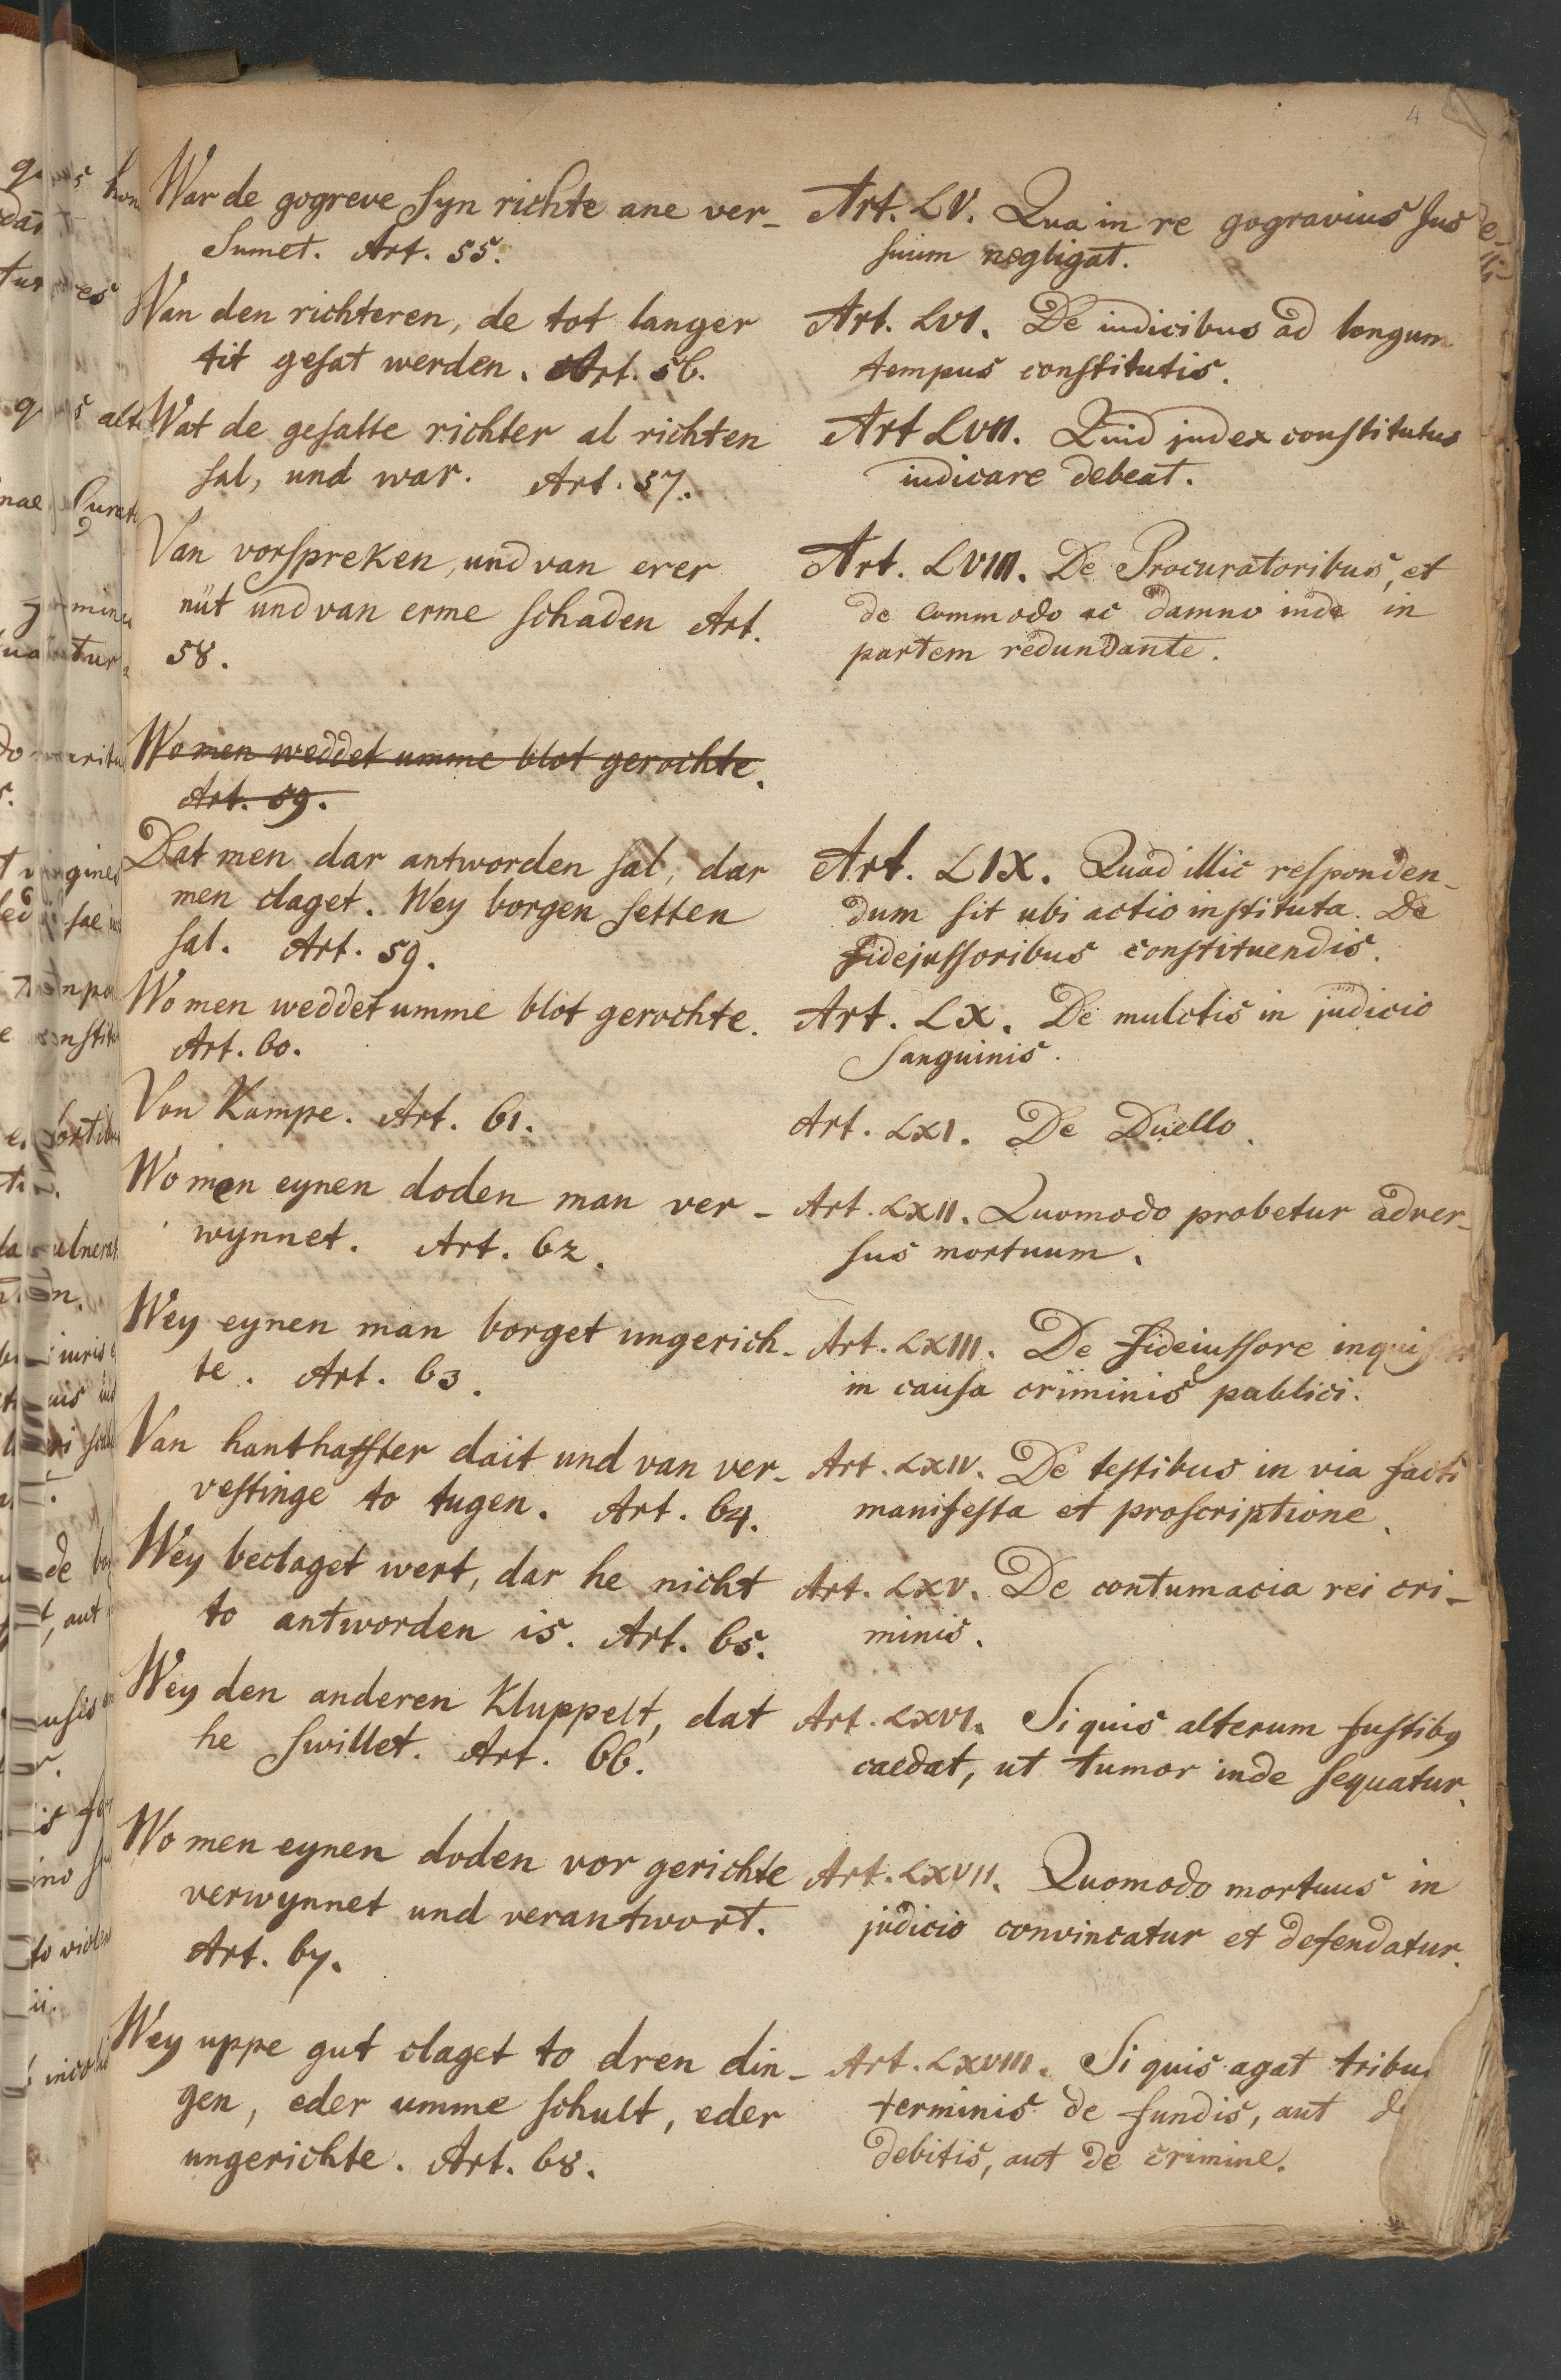 4
War de gogreve syn richte ane ver-
sumet. Art. 55.
Van den richteren, de tot langer
tit gesat werden. Art. 56.
Wat de gesatte richter al richten
sal, und war. Art. 57.
Van vorspreken, und van erer
nüt und van erme schaden Art.
58.
Wo men weddet umme blot gerochte.
Art. 59.
Dat men dar antworden sal, dar
men claget. Wey borgen setten
sal. Art. 59.
Wo men weddet umme blot gerochte.
Art. 60.
Von Kampe. Art. 61.
Wo men eynen doden man ver-
wynnet. Art. 62.
Wey eynen man borget ungerich-
te. Art. 63.
Van hanthaffter dait und van ver-
vestinge to tugen. Art. 64.
Wey beclaget wert, dar he nicht
to antworden is. Art. 65.
Wey den anderen Kluppelt, dat
he swillet. Art. 66.
Wo men eynen doden vor gerichte
verwynnet und verantwort.
Art. 67.
Wey uppe gut claget to dren din-
gen, eder umme schult, eder
ungerichte. Art. 68.
Art. LV. Qua in re gogravius Jus
suum negligat.
Art. LVI. De iudicibus ad longum
tempus constitutis.
Art LVII. Quid judex constitutus
iudicare debeat.
Art. LVIII. De Procuratoribus, et
de commodo ac damno inde in
partem redundante.
Art. LIX. Quod illic responden-
dum sit ubi actio instituta. De
fidejussoribus constituendis.
Art. LX. De mulctis in judicio
sanguinis.
Art. LXI. De Duello.
Art. LXII. Quomodo probetur adver-
sus mortuum.
Art. LXIII. De fideiussore
in causa criminis publici.
Art. LXIV. De testibus in via facti
manifesta et proscriptione.
Art. LXV. De contumacia rei cri-
minis.
Art. LXVI. Si quis alterum fustibq
caedat, ut tumor inde sequatur.
Art. LXVII. Quomodo mortuus in
judicio convincatur et defendatur.
Art. LXVIII. Si quis agat tribu
terminis de fundis, aut d
debitis, aut de crimine.